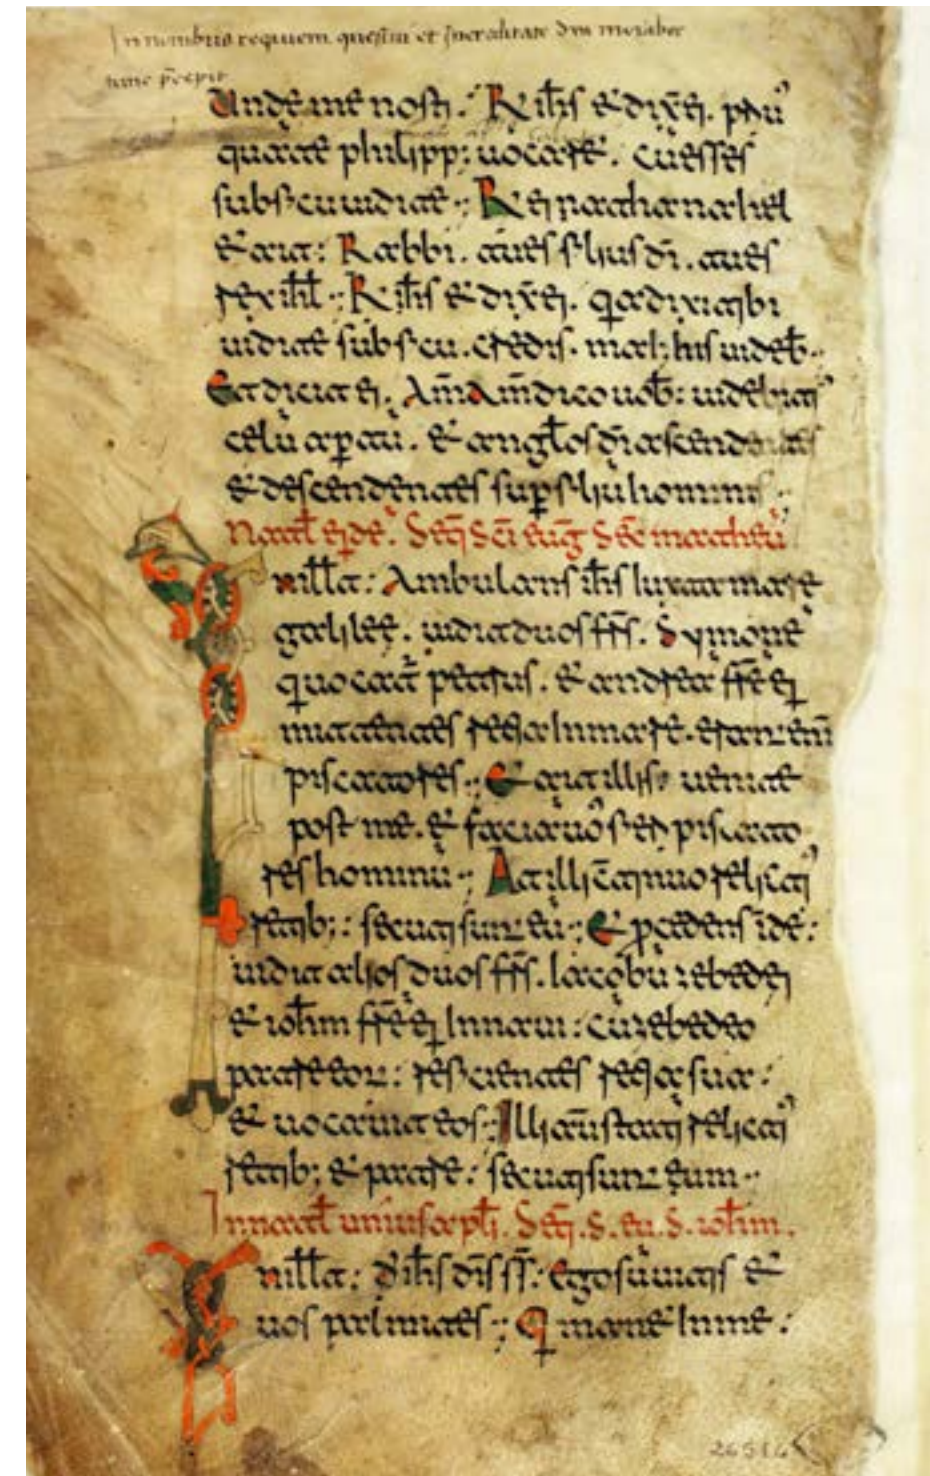 In omnibus requiem quesiui et hereditate dni morabor
tunc precepit
Unde me nosti. R ihs & dix ei. priu
qua te philipp; uocare. cu esses
sub ficu uidi te; R ei nathanahel
& ait: Rabbi. tu es filius di. tu es
rex isrl; R ihs & dix ei. quia dixi tibi
uidi te sub ficu. credis. mai; his uideb.
Et dicit ei. Am am dico uob: uidebitis
celu apertu. & anglos di ascendentes
& descendentes sup filiu hominis;
Natal eide. Seq sci eug sec matheu
In illt: Ambulans ihs iuxta mare
galilee. uidit duos frs. Symone
qui uocat petrus. & andrea fre ei
mittentes rethia in mare. erant eni
piscatores; Et ait illis: uenite
post me. & facia uos fieri piscato
res hominu; At illi c tinuo relictis
retib; secuti sunt eu; Et pcedens ide:
uidit alios duos frs. iacobu zebedei
& iohm fre ei in naui: cu zebedeo
patre eor: reficientes rethia sua:
& uocauit eos; Illi aut statim relictis
retib; & patre: secuti sunt eum
In natal unius apli. Seq. s. eu. s. iohm.
In illt: d ihs dis s: Ego su uitis &
uos palmites; Qi manet in me:
26516